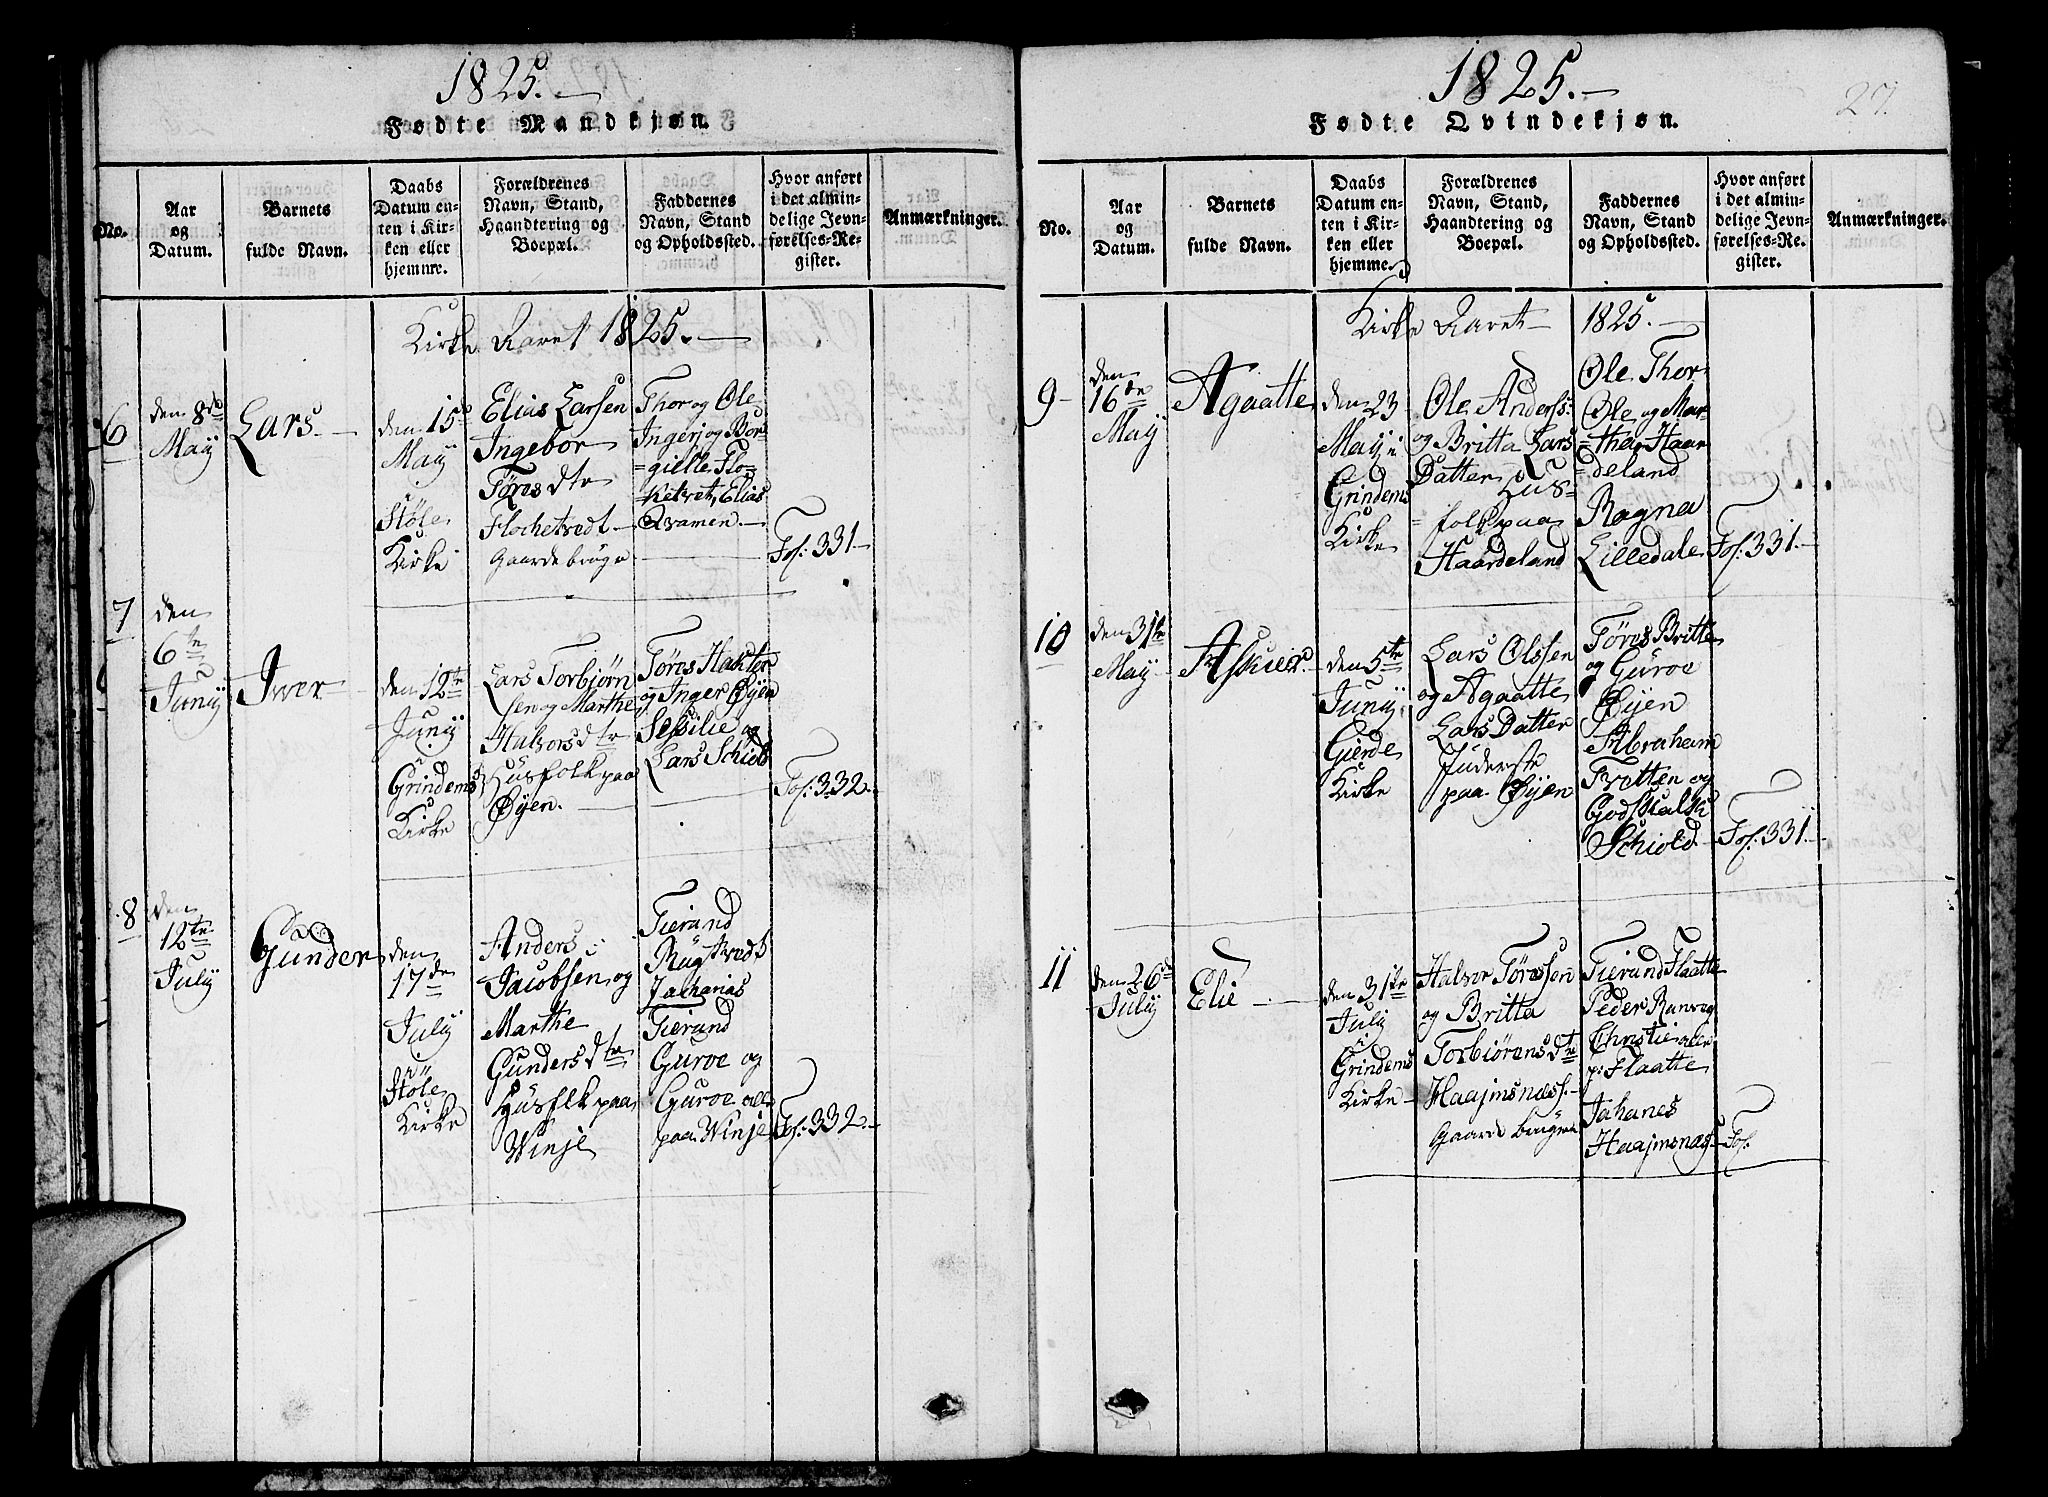 1825.
Fødte Mandkjøn.
No.
Aar
og
Datum.
Barnets
fulde Navn.
Daabs
Datum en-
ten i Kir-
ken eller
hjemme.
Forældrenes
Navn, Stand,
Haandtering og
Boepæl.
Faddernes
Navn, Stand
og Opholdssted.
Hvor anført
i det almin-
delige Jevn-
førelses-Re-
gister.
Anmærkninger.
Kirke Aaret 1825.
6
den 8de
May
Lars
den 15de
May
i
Støle
Kirke
Elias Larsen
Ingebor
Tøres dtr
Flochetvedt
Gaardebruge
Thor og Ole
Ingerj og Bor-
=gielle Flo-
Ketvet, Elias
Qvamen.
Fol: 331
7
den
6te
Junij
Iver
den 12te
Junij
i
Grindems
Kirke
Lars Torbjørn
sen og Marthe
Halvors dtr
Husfolk paa
Øyen.
Tøres Halvor
og Inger Øyen
Sessilie og
Lars Schiold
Fol: 332.
8
den
12te
July
Gunder
den
17de
July
i
Støle
Kirke
Anders
Jacobsen og
Marthe
Gunders dtr
Husflk paa
Winje
Tierand
Rügtvedt
Zacharias
Tierand
Guroe og
Guroe alle
paa Winje
Fol: 332.
1825.
27.
Fødte Qvindekjøn.
No.
Aar
og
Datum.
Barnets
fulde Navn.
Daabs
Datum en-
ten i Kir-
ken eller
hjemme.
Forældrenes
Navn, Stand,
Haandtering og
Boepæl.
Faddernes
Navn, Stand
og Opholdssted.
Hvor anført
i det almin-
delige Jevn-
førelses-Re-
gister.
Anmærkninger.
Kirke Aaret 1825.
9
den
16de
May
Agaatte
den 23
May i
Grindems
Kirke
Ole Anders:
og Britta Lars
Datter Hus-
=folk paa
Haardeland
Ole Thor
Ole og Mar-
=tha Haar
=deland
Ragna
Lilledale
Fol: 331.
10
den 31te
May
Askier
den 5te
Junij
i
Gierde
Kirke
Lars Olssen
og Agaatte
Lars Datter
Inderste
paa Øyen
Tøres Britte
og Guroe
Øyen
Abraham
Tvetten og
Godskalk
Schiold
Fol: 331.
11
den 26de
July
Elie
den 31te
July
i
Grindems
Kirke
Halvor Tøressen
og Britta
Torbiørens dtr
Haajmsnæss.
Gaarde brugere
Tierand Flaatte
Peder Ranveg
Christi alle
p: Flaatte
Johanes
Haajmsnæs
Fol.